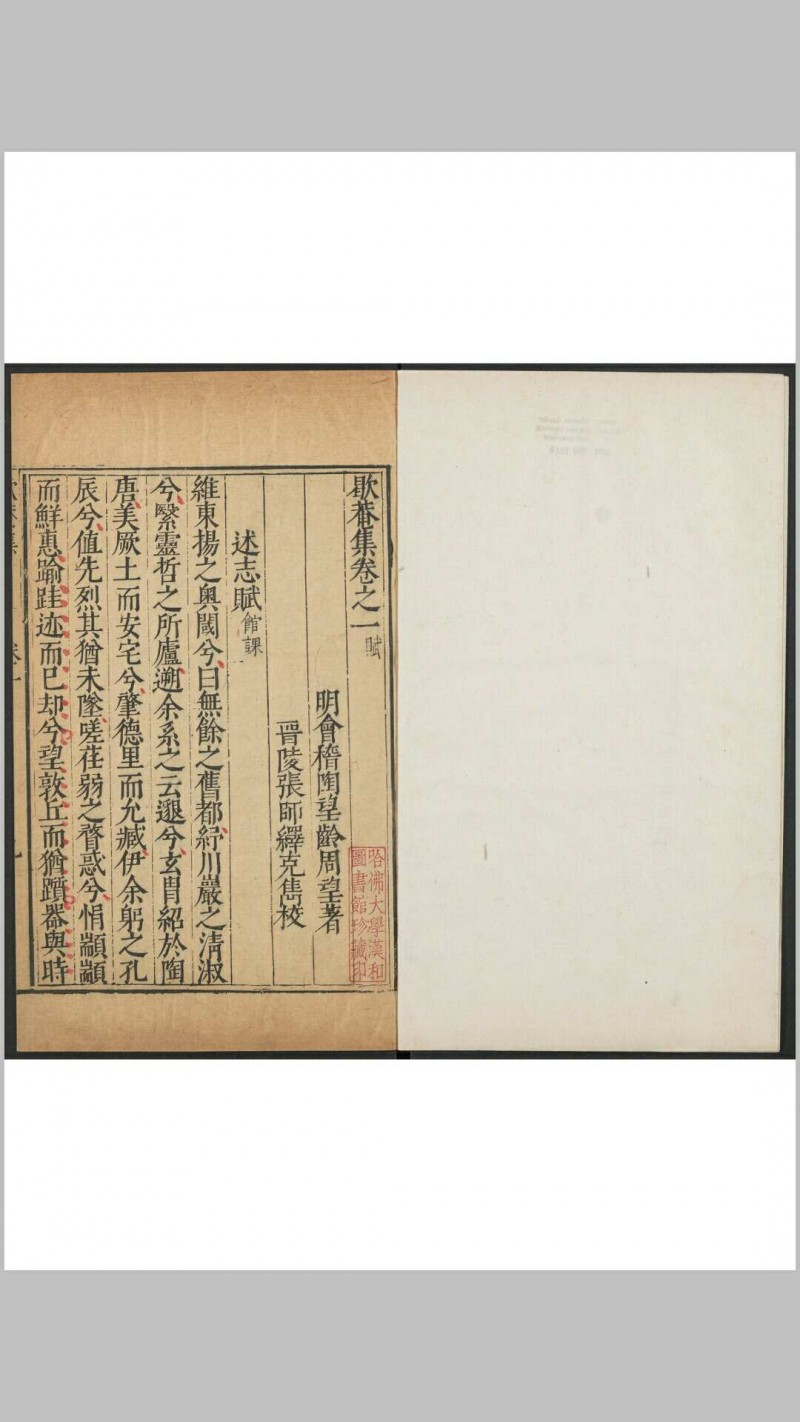 歇菴集卷之一 賦
明會稽陶望齡周望著
晉陵張師繹克雋校
述志賦 館課
維東揚之奧閾兮曰無餘之舊都紆川巖之清淑
兮繄靈哲之所廬遡余系之云遐兮玄胄紹於陶
唐美厥土而安宅兮肇德里而允臧伊余躬之孔
辰兮值先烈其猶未墜嗟荏弱之瞀惑兮悁顓顓
而鮮惠踰跬迹而已却兮望敦丘而猶躓器與時
哈佛大學漢和
圖書館珍藏印